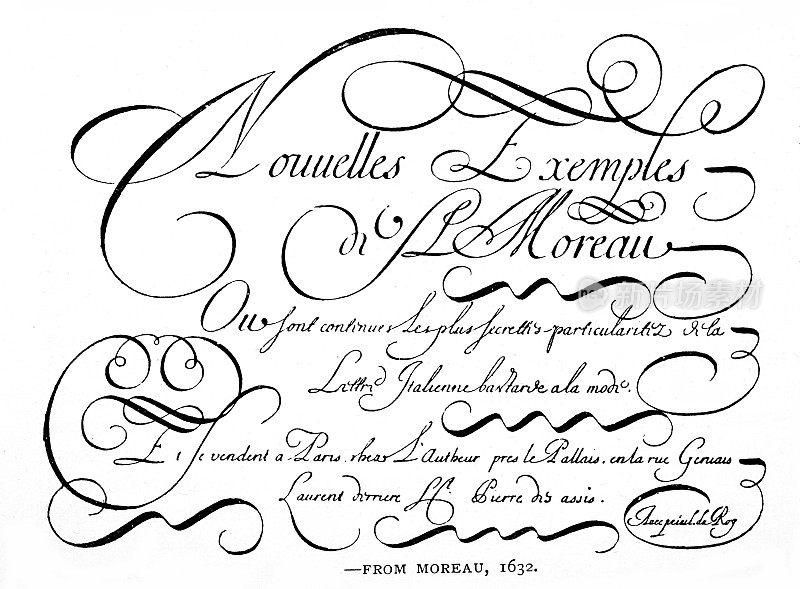 Nouuelles Exemples
de P. Moreau
Ou sont contenues les plus secrettes particularitez de la
Lettre Italienne bastarde a la mode.
Et se vendent a Paris. chez L'Autheur pres le Pallais. en la rue Geruais
Laurent derriere St. Pierre des assis.
Auec priuil. du Roy
—FROM MOREAU, 1632.
新片场素材
istockphoto.com